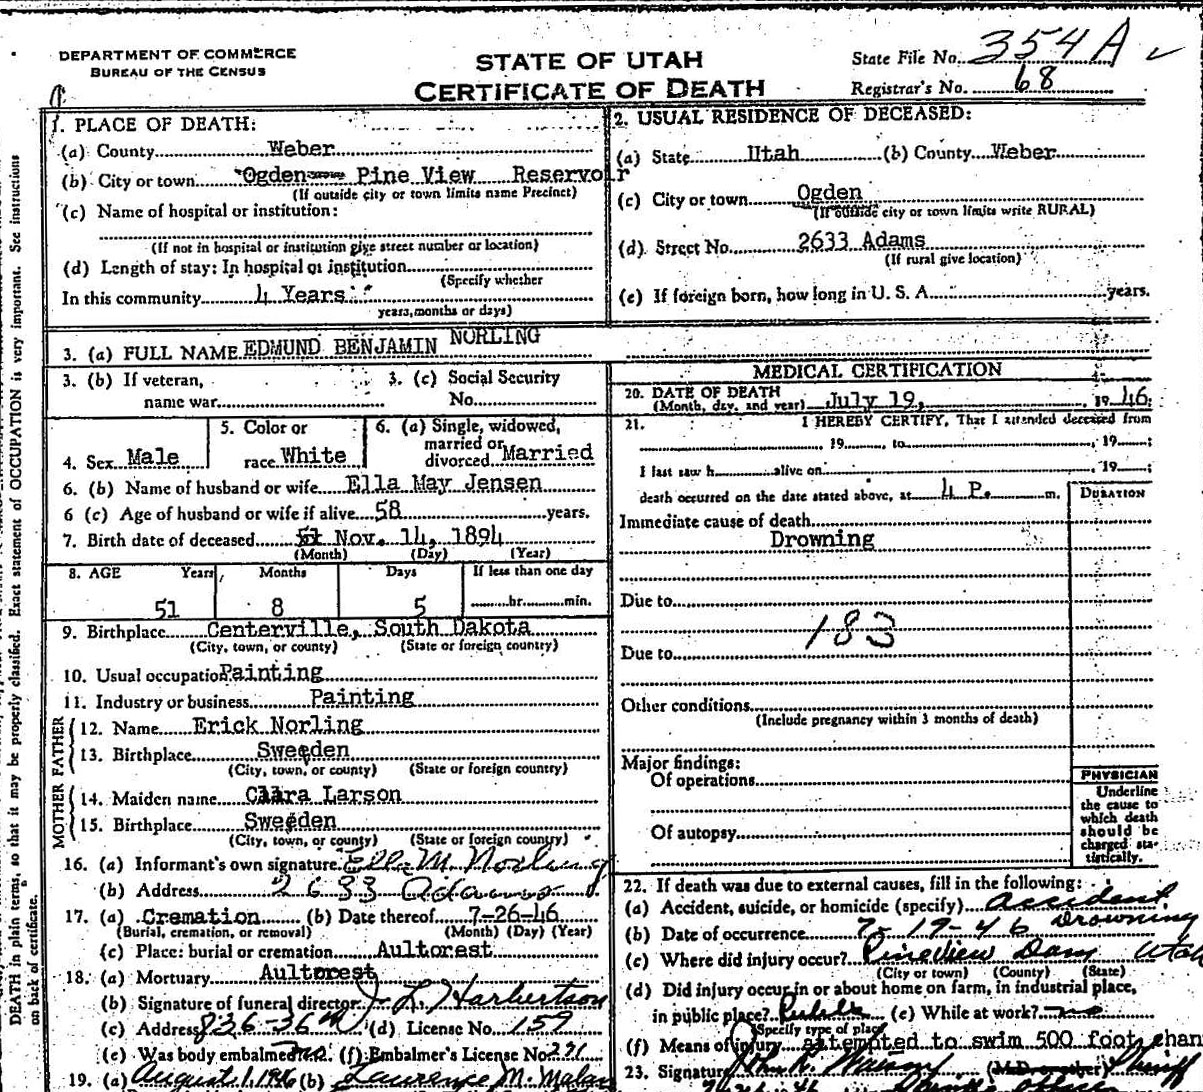 DEPARTMENT OF COMMERCE
BUREAU OF THE CENSUS
STATE OF UTAH
CERTIFICATE OF DEATH
State File No. 354 A
Registrar's No. 68
1. PLACE OF DEATH:
(a) County Weber
(b) City or town Ogden Pine View Reservoir
(If outside city or town limits name Precinct)
(c) Name of hospital or institution:
(If not in hospital or institution give street number or location)
(d) Length of stay: In hospital or institution
(Specify whether
In this community 4 Years
years, months or days)
2. USUAL RESIDENCE OF DECEASED:
(a) State Utah (b) County Weber
(c) City or town Ogden
(If outside city or town limits write RURAL)
(d) Street No. 2633 Adams
(If rural give location)
(e) If foreign born, how long in U. S. A. years.
3. (a) FULL NAME EDMUND BENJAMIN NORLING
3. (b) If veteran,
name war
3. (c) Social Security
No.
4. Sex Male
5. Color or
race White
6. (a) Single, widowed,
married or
divorced Married
6. (b) Name of husband or wife Ella May Jensen
6 (c) Age of husband or wife if alive 58 years.
7. Birth date of deceased Nov. 14, 1894
(Month) (Day) (Year)
8. AGE Years Months Days If less than one day
51 8 5 hr. min.
9. Birthplace Centerville, South Dakota
(City, town, or county) (State or foreign country)
10. Usual occupation Painting
11. Industry or business Painting
FATHER
12. Name Erick Norling
13. Birthplace Sweeden
(City, town, or county) (State or foreign country)
MOTHER
14. Maiden name Clara Larson
15. Birthplace Sweeden
(City, town, or county) (State or foreign country)
16. (a) Informant's own signature Ella M. Norling
(b) Address 2633 Adams
17. (a) Cremation (b) Date thereof 7-26-46
(Burial, cremation, or removal) (Month) (Day) (Year)
(c) Place: burial or cremation Aultorest
18. (a) Mortuary Aultorest
(b) Signature of funeral director J. L. Harbertson
(c) Address 836-36th (d) License No. 159
(e) Was body embalmed no (f) Embalmer's License No. 291
19. (a) August 1, 1946 (b) Laurence M. Malan
MEDICAL CERTIFICATION
20. DATE OF DEATH
(Month, day, and year) July 19, 1946.
21. I HEREBY CERTIFY, That I attended deceased from
19 to 19 ;
I last saw h alive on 19 ;
death occurred on the date stated above, at 4 P. m.
DURATION
Immediate cause of death
Drowning
Due to
183
Due to
Other conditions
(Include pregnancy within 3 months of death)
Major findings:
Of operations
Of autopsy
PHYSICIAN
Underline
the cause to
which death
should be
charged sta-
tistically.
22. If death was due to external causes, fill in the following:
(a) Accident, suicide, or homicide (specify) Accident
(b) Date of occurrence 7-19-46 Drowning
(c) Where did injury occur? Pineview Dam Utah
(City or town) (County) (State)
(d) Did injury occur in or about home on farm, in industrial place,
in public place? Public (e) While at work? no
(Specify type of place
(f) Means of injury attempted to swim 500 foot chan
23. Signature John R. Watson (M.D. or other) Sheriff
DEATH in plain terms, so that it may be properly classified. Exact statement of OCCUPATION is very important. See instructions
on back of certificate.